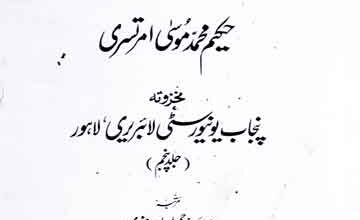 حکیم محمد موسیٰ امرتسری
مخزونہ
پنجاب یونیورسٹی لائبریری، لاہور
(جلد پنجم)
مرتبہ